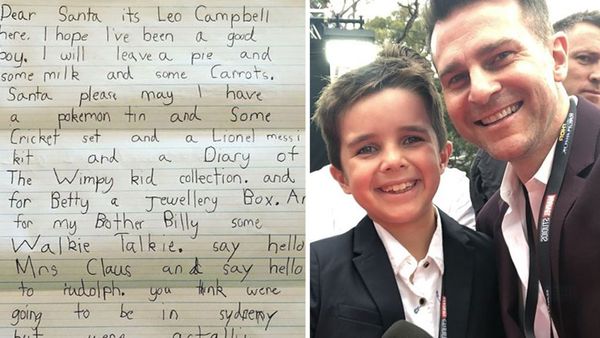 Dear Santa its Leo Campbell
here. I hope I've been a good
boy. I will leave a pie and
some milk and some Carrots.
Santa please may I have
a pokemon tin and Some
Cricket set and a Lionel messi
kit and a Diary of
The Wimpy kid collection. and
for Betty a Jewellery Box. An
for my Bother Billy some
Walkie Talkie. say hello
Mrs Claus and say hello
to rudolph. you think were
going to be in sydney
but were actally
STUDIOS